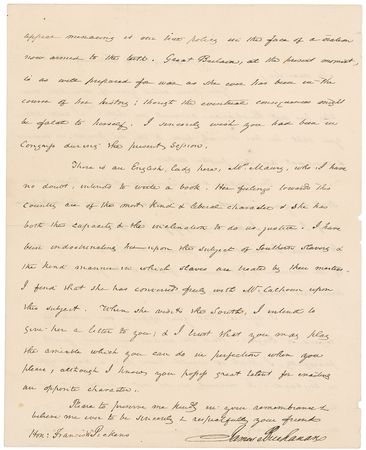 appear menacing is our true policy in the face of a nation
now armed to the teeth. Great Britain, at the present moment,
is as well prepared for war as she ever has been in the
course of her history; though the eventual consequences might
be fatal to herself. I sincerely wish you had been in
Congress during the present Session.
There is an English lady here, Mrs Maury, who, I have
no doubt, intends to write a book. Her feelings towards this
country are of the most kind & liberal character & she has
both the capacity & the inclination to do us justice. I have
been indoctrinating her upon the subject of Southern slavery &
the kind manner in which slaves are treated by their masters.
I find that she has conversed freely with Mr Calhoun upon
this subject. When she visits the South, I intend to
give her a letter to you; & I trust that you may play
the amiable which you can do in perfection when you
please, although I know you possess great talent for enacting
an opposite character.
Please to preserve me kindly in your remembrance &
believe me ever to be sincerely & respectfully your friend
Hon: Francis W Pickens James Buchanan